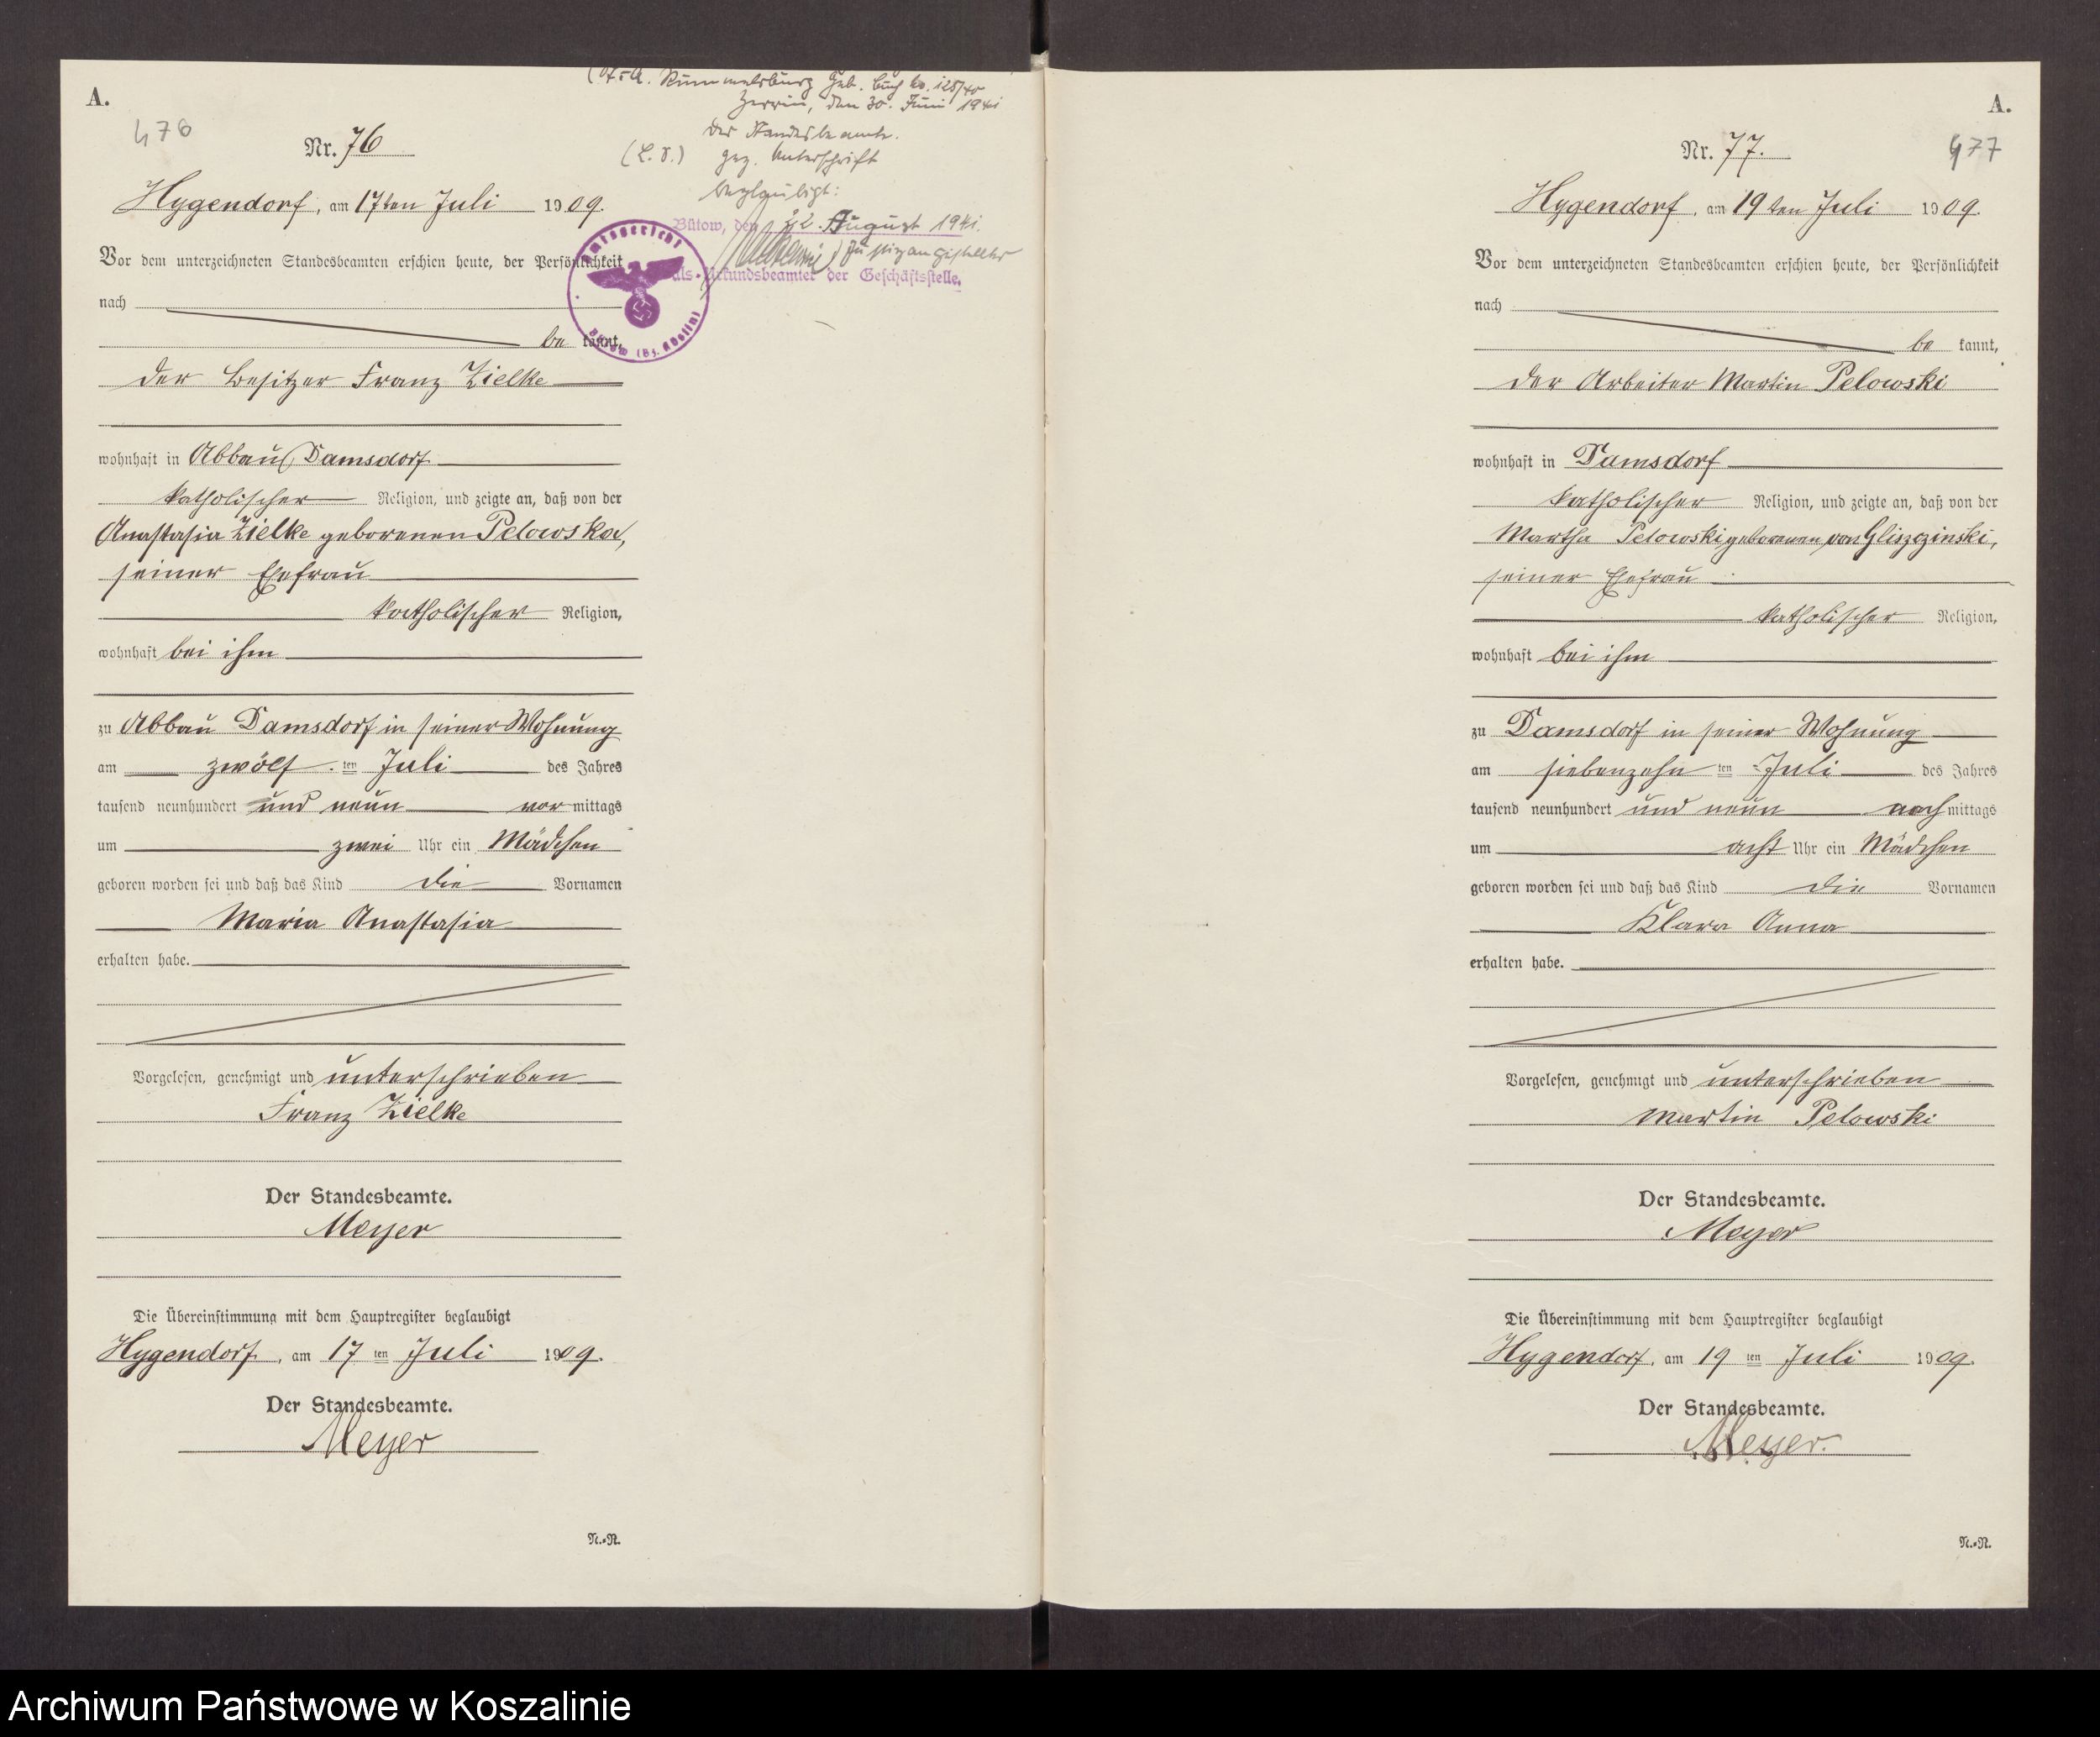 A.
476
Nr. 76
Hygendorf, am 17ten Juli 1909.
Vor dem unterzeichneten Standesbeamten erschien heute, der Persönlichkeit
nach
be kannt,
der Besitzer Franz Zielke
wohnhaft in Abbau Damsdorf
katholischer Religion, und zeigte an, daß von der
Anastasia Zielke geborenen Pelowska,
seiner Ehefrau
katholischer Religion,
wohnhaft bei ihm
zu Abbau Damsdorf in seiner Wohnung
am zwölf ten Juli des Jahres
tausend neunhundert und neun vor mittags
um zwei Uhr ein Mädchen
geboren worden sei und daß das Kind die Vornamen
Maria Anastasia
erhalten habe.
Vorgelesen, genehmigt und unterschrieben
Franz Zielke
Der Standesbeamte.
Meyer
Die Übereinstimmung mit dem Hauptregister beglaubigt
Hygendorf, am 17 ten Juli 1909.
Der Standesbeamte.
Meyer
N.-R.
Rummelsburg Geb. Buch No. 125/40
Zerrin, den 30. Juni 1941
Der Standesbeamte.
(L.S.) gez. Unterschrift
beglaubigt:
Bütow, den 22. August 1941.
Justizangestellter
als Urkundsbeamter der Geschäftsstelle.
Amtsgericht
Bütow (Bz. Köslin)
A.
Nr. 77.
477
Hygendorf, am 19ten Juli 1909.
Vor dem unterzeichneten Standesbeamten erschien heute, der Persönlichkeit
nach
be kannt,
der Arbeiter Martin Pelowski
wohnhaft in Damsdorf
katholischer Religion, und zeigte an, daß von der
Martha Pelowski geborenen von Gliszczinski,
seiner Ehefrau
katholischer Religion,
wohnhaft bei ihm
zu Damsdorf in seiner Wohnung
am siebenzehn ten Juli des Jahres
tausend neunhundert und neun nach mittags
um acht Uhr ein Mädchen
geboren worden sei und daß das Kind die Vornamen
Klara Anna
erhalten habe.
Vorgelesen, genehmigt und unterschrieben
Martin Pelowski
Der Standesbeamte.
Meyer
Die Übereinstimmung mit dem Hauptregister beglaubigt
Hygendorf, am 19 ten Juli 1909.
Der Standesbeamte.
Meyer.
N.-R.
Archiwum Państwowe w Koszalinie